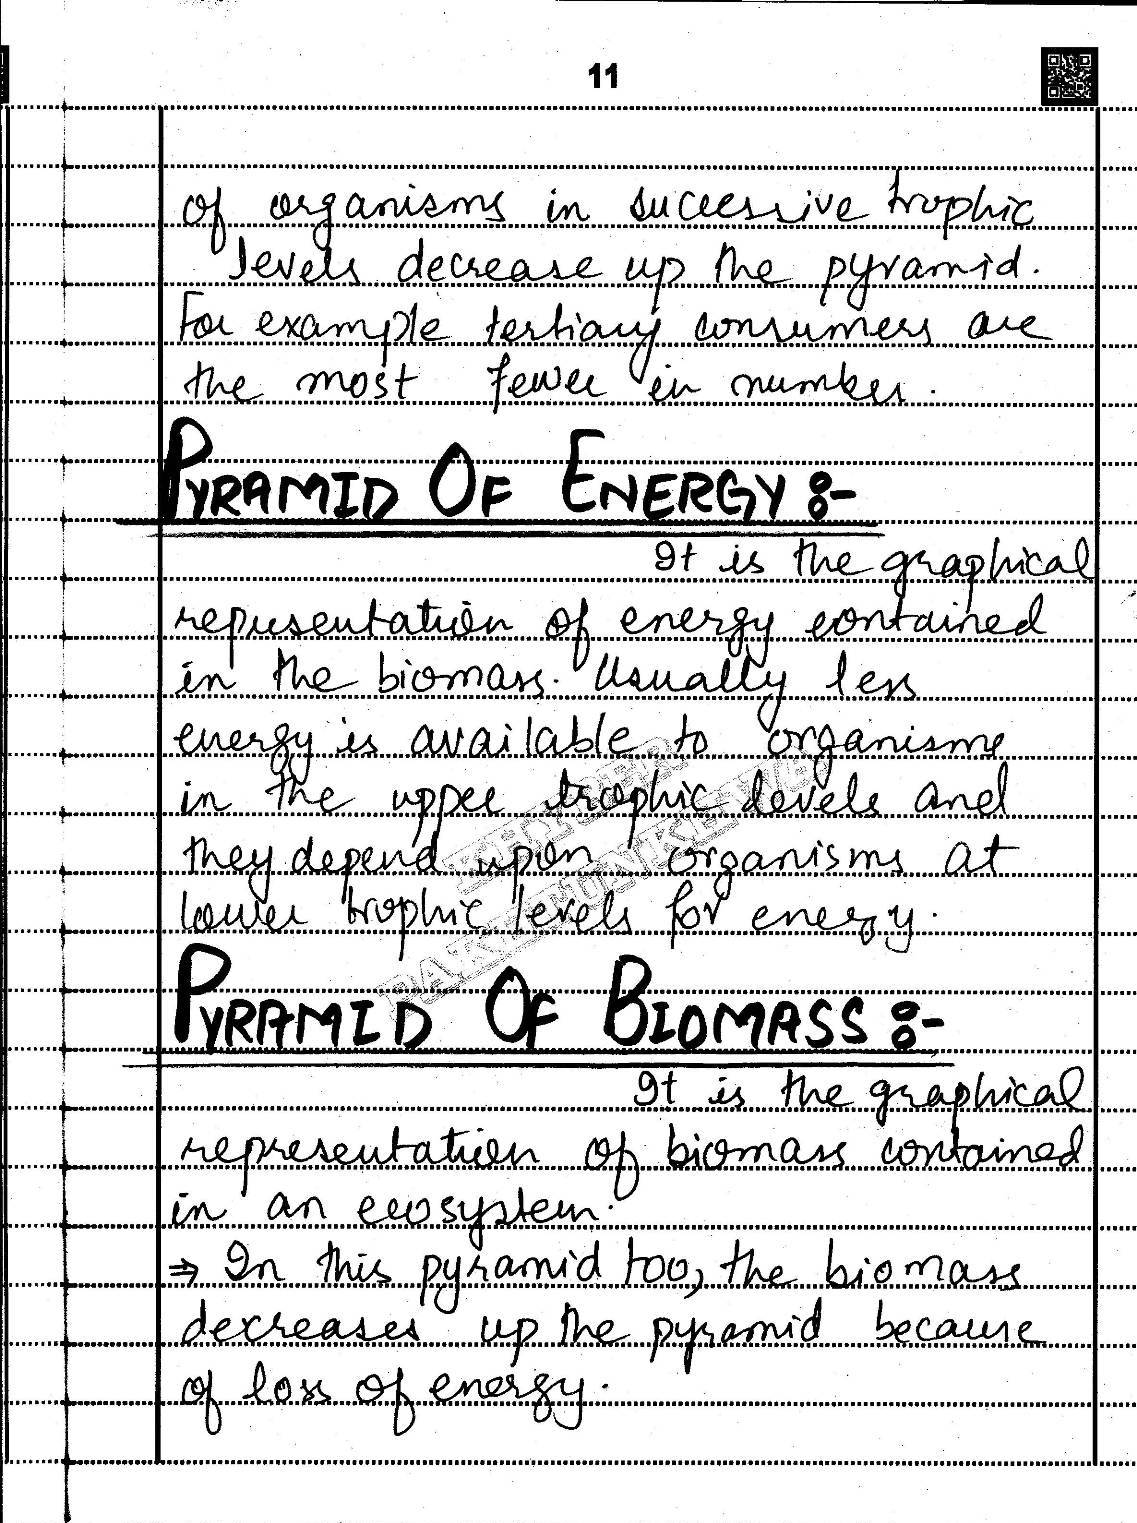 11
of organisms in successive trophic
levels decrease up the pyramid.
For example tertiary consumers are
the most fewer in number.
PYRAMID OF ENERGY :-
It is the graphical
representation of energy contained
in the biomass. Usually less
energy is available to organisms
in the upper trophic levels and
they depend upon organisms at
lower trophic levels for energy.
KHYBER
PAKHTUNKHWA
PYRAMID OF BIOMASS :-
It is the graphical
representation of biomass contained
in an ecosystem.
⇒ In this pyramid too, the biomass
decreases up the pyramid because
of loss of energy.